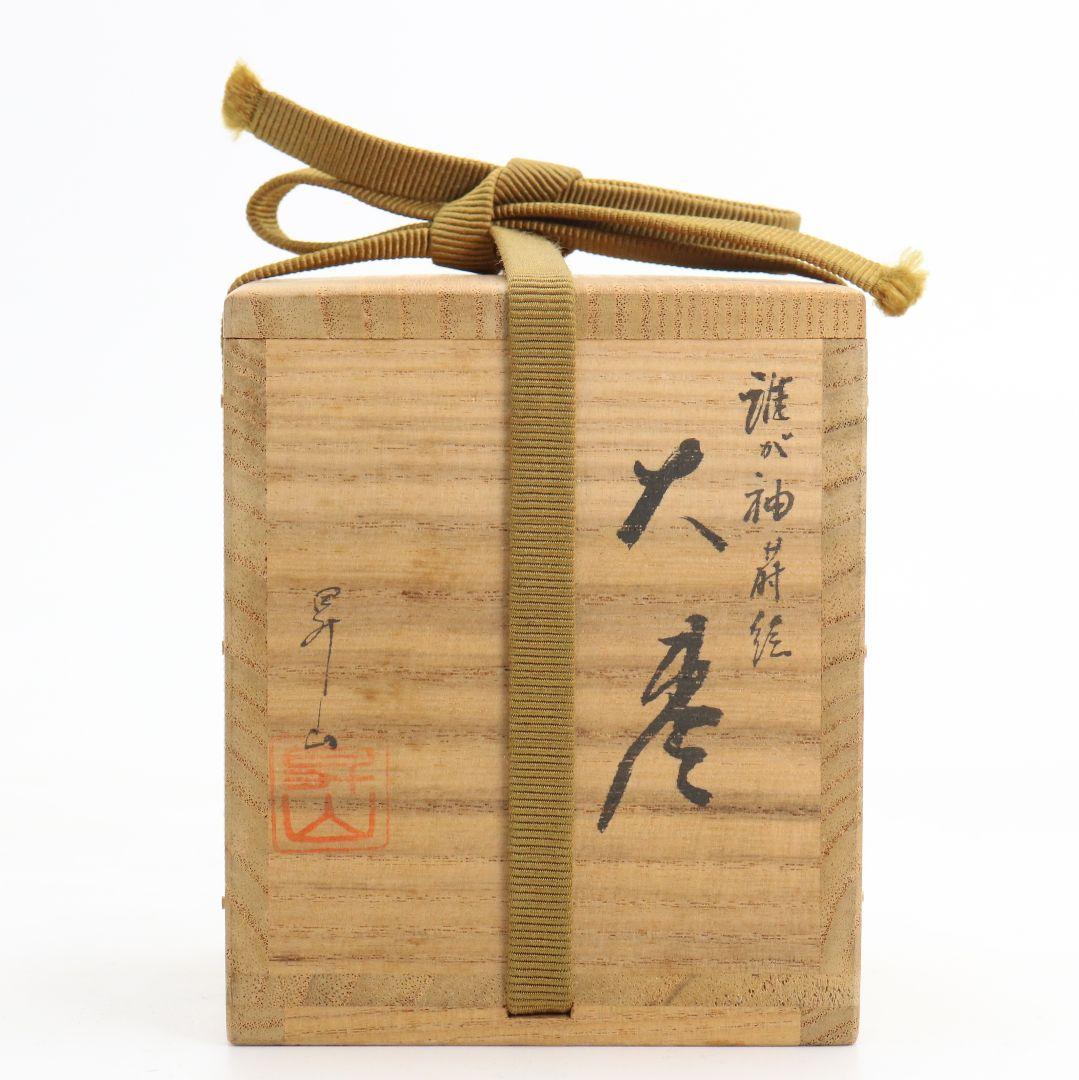 誰が袖蒔絵
大棗
昇山
昇山